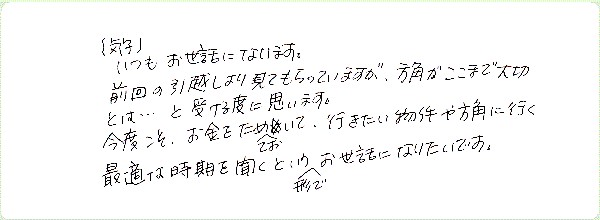 (気学)
いつもお世話になります。
前回の引越しより見てもらっていますが、方角がここまで大切
とは… と受ける度に思います。
今度こそ、お金をためておいて、行きたい物件や方角に行く
最適な時期を聞くという形でお世話になりたいです。